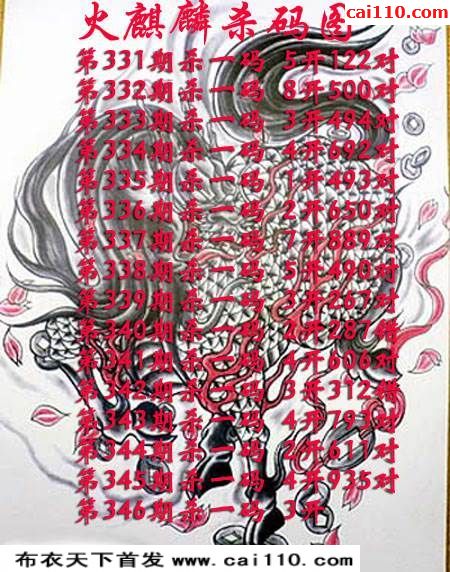 cai110.com
火麒麟杀码图
第331期杀一码 5开122对
第332期杀一码 8开500对
第333期杀一码 3开494对
第334期杀一码 4开692对
第335期杀一码 1开493对
第336期杀一码 2开650对
第337期杀一码 7开889对
第338期杀一码 5开490对
第339期杀一码 3开267对
第340期杀一码 2开287错
第341期杀一码 4开606对
第342期杀一码 3开312错
第343期杀一码 4开793对
第344期杀一码 2开611对
第345期杀一码 4开935对
第346期杀一码 3开
布衣天下首发 www.cai110.com